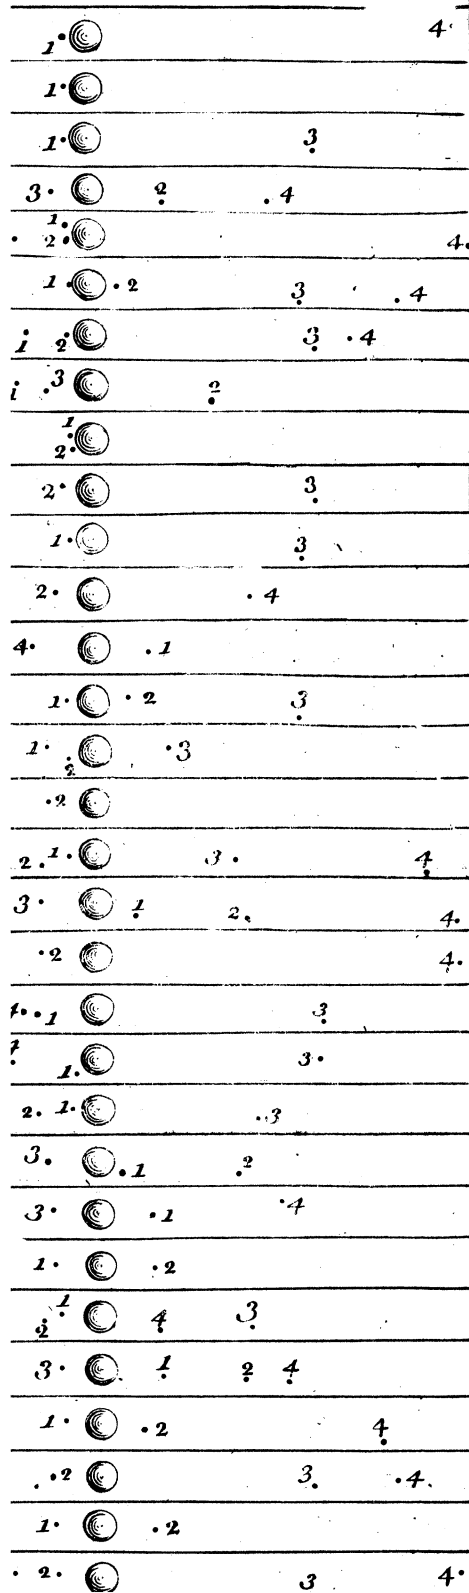 1 4
1
1 3
3 2 4
1
2 4
1 2 3 4
1 2 3 4
i 3 2
1
2
2 3
1 3
2 4
4 1
1 2 3
1 3
2
2
2 1 3 4
3 1 2 4
2 4
4 1 3
4
1 3
2 1 3
3 1 2
3 1 4
1 2
1
2 4 3
3 1 2 4
1 2 4
2 3 4
1 2
2 3 4